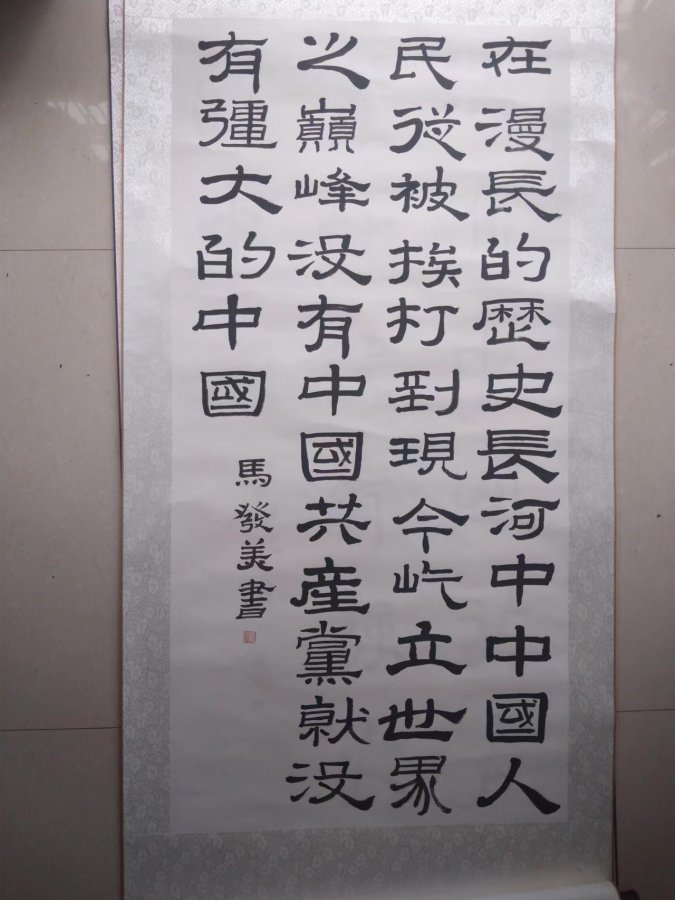 在漫長的歷史長河中中國人
民從被挨打到現今屹立世界
之巔峰没有中國共産黨就没
有彊大的中國
馬發美書